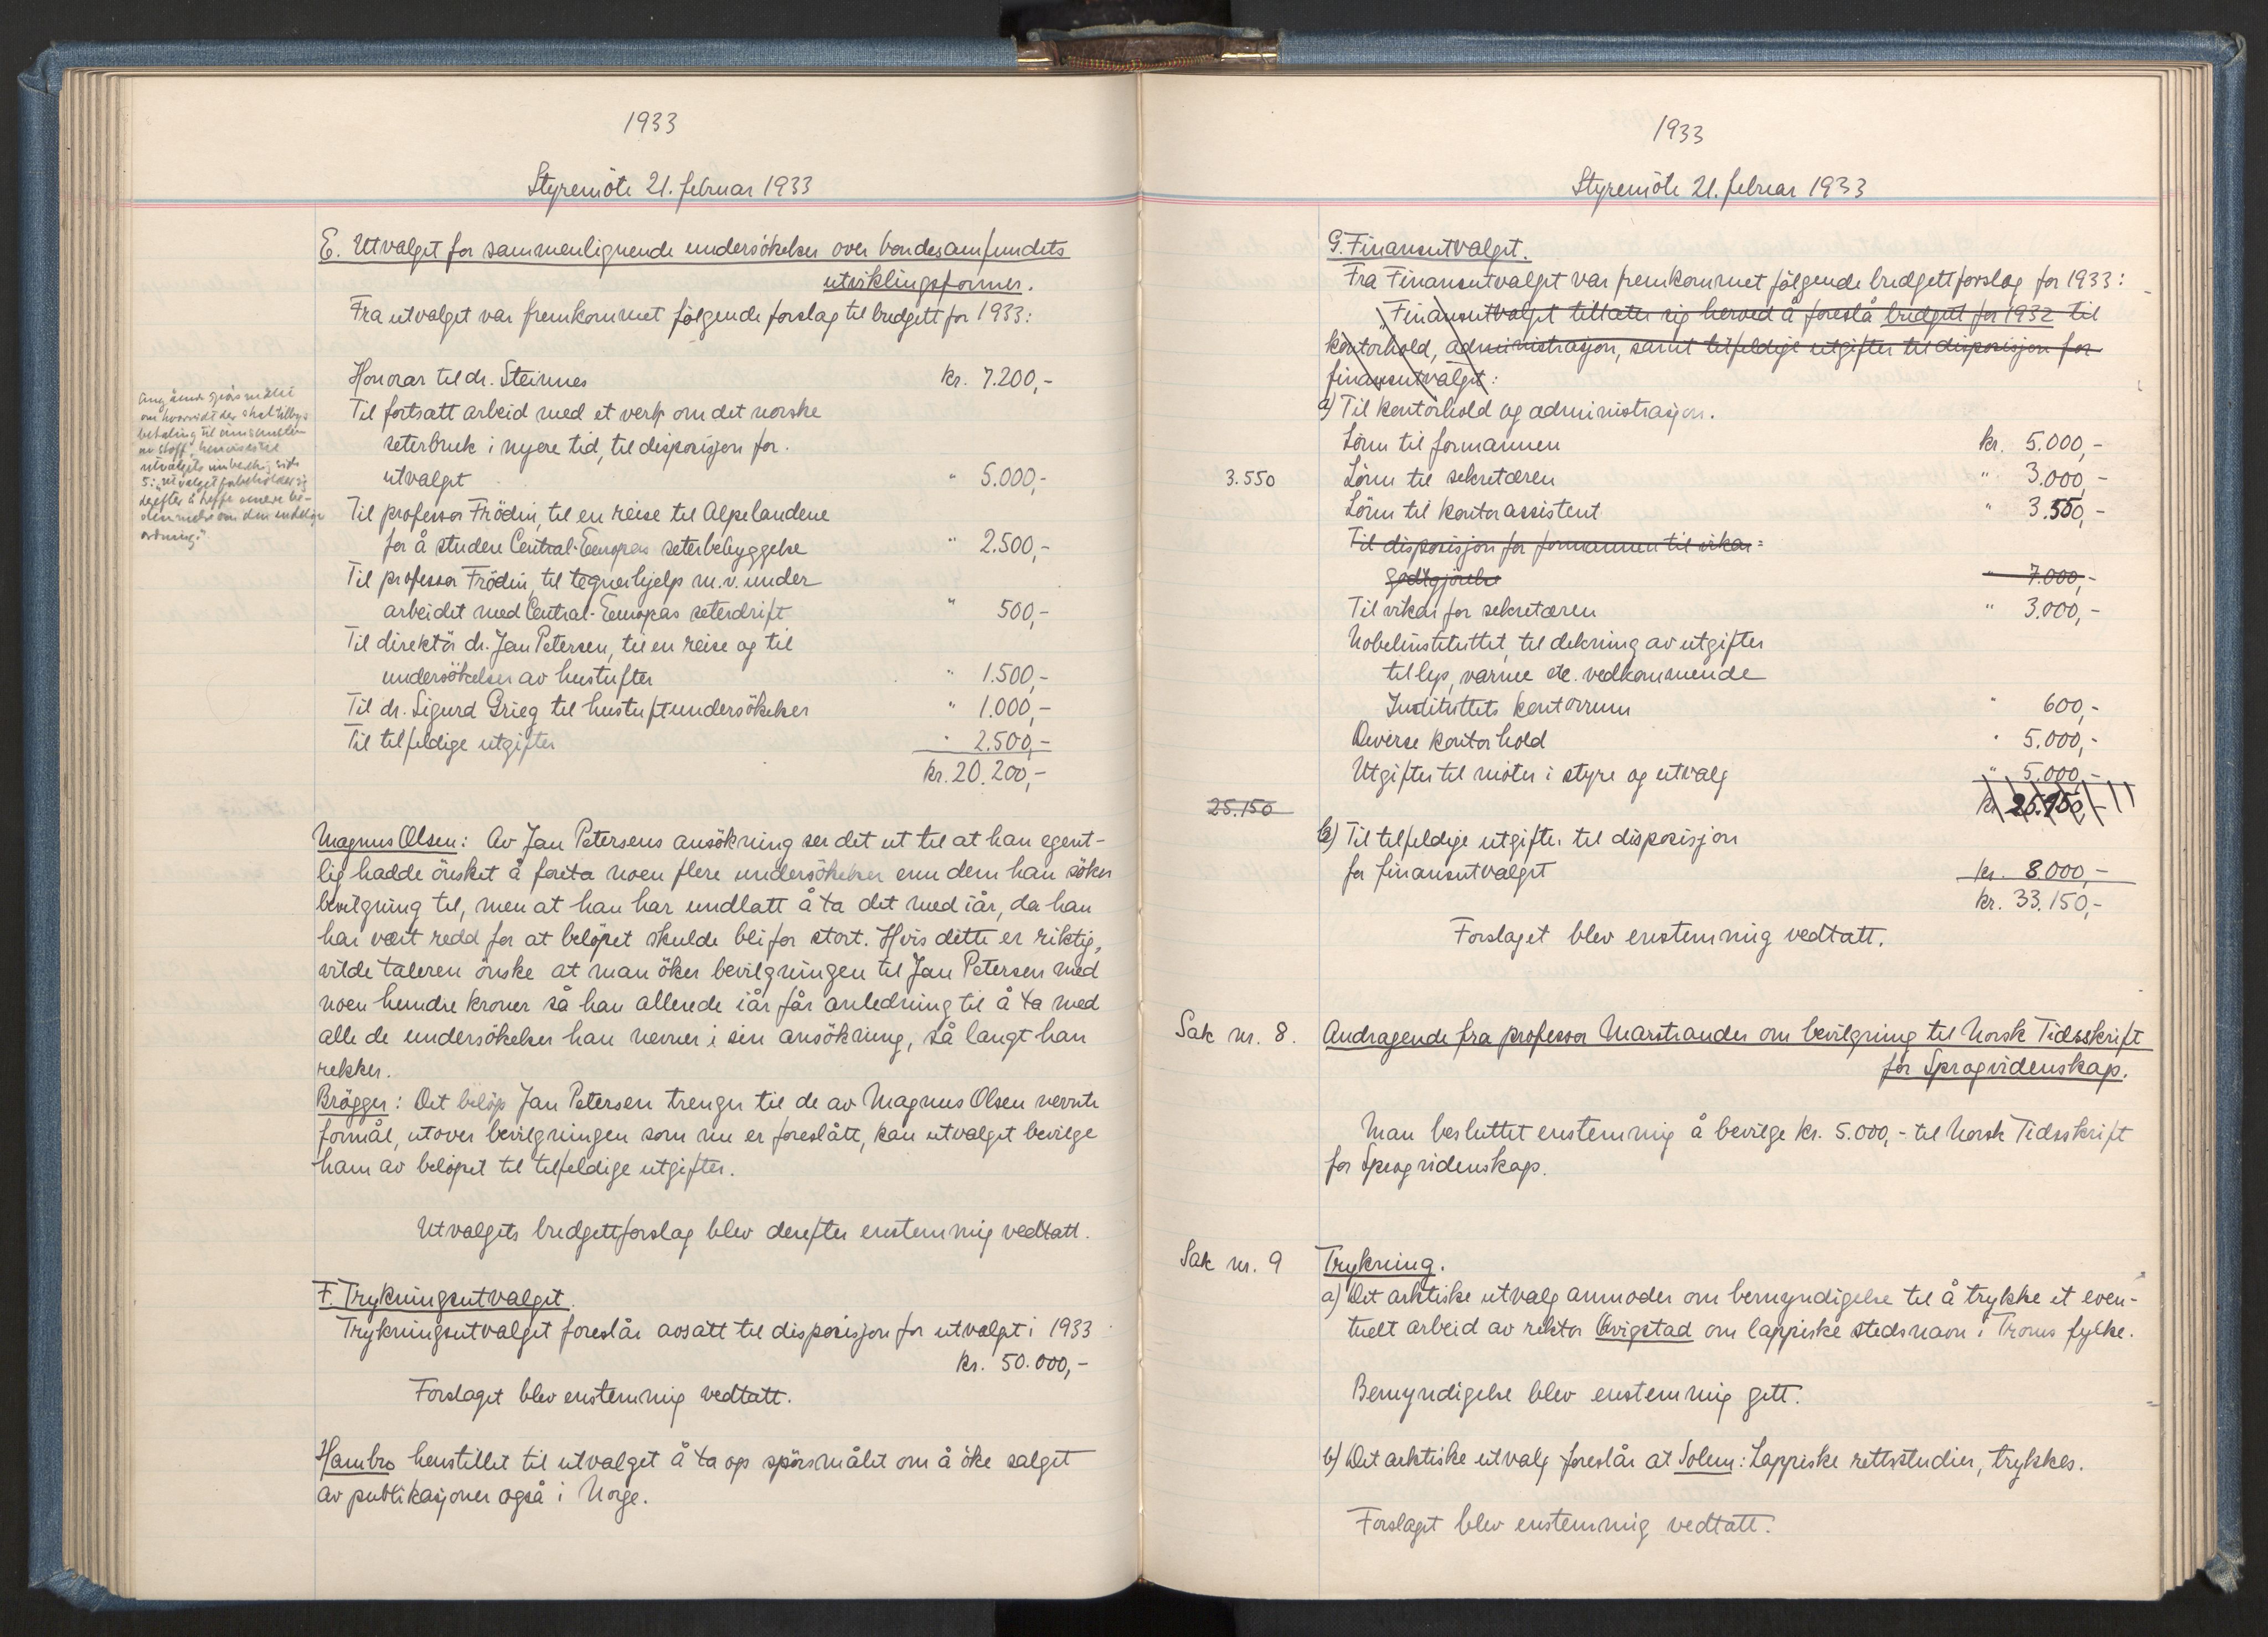 1933
Styremöte 21. februar 1933
E. Utvalget for sammenlignende undersökelser over bondesamfundets
utviklingsformer.
Fra utvalget var fremkommet følgende forslag til budgett for 1933:
Honorar til dr. Steinnes kr. 7.200,-
Til fortsatt arbeid med et verk om det norske
seterbruk i nyere tid, til disposisjon for
utvalget " 5.000,-
Til professor Frödin, til en reise til Alpelandene
for å studere Central-Europas seterbebyggelse " 2.500,-
Til professor Frödin, til tegnehjelp m.v. under
arbeidet med Central-Europas seterdrift " 500,-
Til direktör dr. Jan Petersen, til en reise og til
undersökelser av hustufter " 1.500,-
Til dr. Sigurd Grieg til hustuftundersökelser " 1.000,-
Til tilfeldige utgifter " 2.500,-
kr. 20.200,-
Angående spörsmålet
om hvorvidt der skal tilbys
betaling til innsamlere
av stoff, henvises til
utvalgets innberetn., side
5: "utvalget forbeholder sig
derefter å treffe senere be-
stemmelse om den endelige
ordning."
Magnus Olsen: Av Jan Petersens ansökning ser det ut til at han egent-
lig hadde önsket å foreta noen flere undersökelser enn dem han söker
bevilgning til, men at han har undlatt å ta det med iår, da han
har vært redd for at belöpet skulde bli for stort. Hvis dette er riktig,
vilde taleren önske at man öker bevilgningen til Jan Petersen med
noen hundre kroner så han allerede iår får anledning til å ta med
alle de undersökelser han nevner i sin ansökning, så langt han
rekker.
Brögger: Det belöp Jan Petersen trenger til de av Magnus Olsen nevnte
formål, utover bevilgningen som nu er foreslått, kan utvalget bevilge
ham av belöpet til tilfeldige utgifter.
Utvalgets budgettforslag blev derefter enstemmig vedtatt.
F. Trykningsutvalget.
Trykningsutvalget foreslår avsatt til disposisjon for utvalget i 1933
kr. 50.000,-
Forslaget blev enstemmig vedtatt.
Hambro henstillet til utvalget å ta op spörsmålet om å öke salget
av publikasjoner også i Norge.
1933
Styremöte 21. februar 1933
G. Finansutvalget.
Fra Finansutvalget var fremkommet fölgende budgettforslag for 1933:
"Finansutvalget tillater sig herved å foreslå budgett for 1932 til
kontorhold, administrasjon, samt tilfeldige utgifter til disposisjon for
finansutvalget:
a) Til kontorhold og administrasjon.
Lönn til formannen kr. 5.000,-
3.550 Lönn til sekretæren " 3.000,-
Lönn til kontorassistent " 3.550,-
Til disposisjon for formannen til vikar=
godtgjörelse " 7.000,-
Til vikar for sekretæren " 3.000,-
Nobelinstituttet, til dekning av utgifter
til lys, varme etc. vedkommende
Instituttets kontorrum " 600,-
Diverse kontorhold " 5.000,-
Utgifter til möter i styre og utvalg " 5.000,-
25.150 kr. 25.150,-
b) Til tilfeldige utgifter til disposisjon
for finansutvalget kr. 8.000,-
kr. 33.150,-
Forslaget blev enstemmig vedtatt.
Sak nr. 8. Andragende fra professor Marstrander om bevilgning til Norsk Tidsskrift
for Sprogvidenskap.
Man besluttet enstemmig å bevilge kr. 5.000,- til Norsk Tidsskrift
for Sprogvidenskap.
Sak nr. 9 Trykning.
a) Det arktiske utvalg anmoder om bemyndigelse til å trykke et even-
tuelt arbeid av rektor Qvigstad om lappiske stedsnavn i Troms fylke.
Bemyndigelse blev enstemmig gitt.
b) Det arktiske utvalg foreslår at Solem: Lappiske rettsstudier, trykkes.
Forslaget blev enstemmig vedtatt.